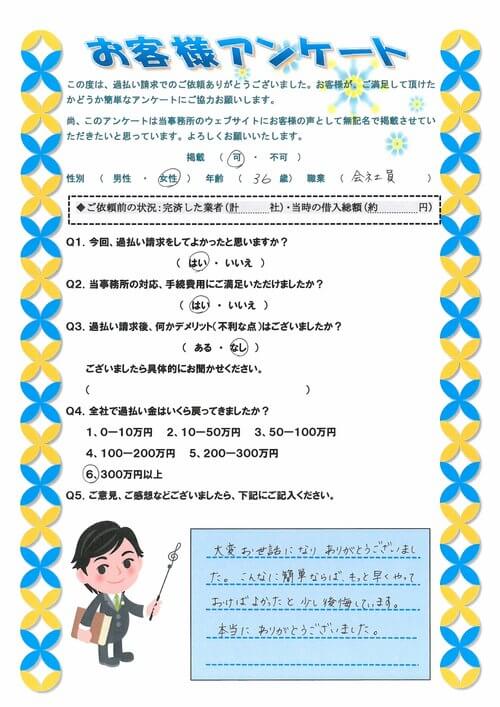 お客様アンケート
この度は、過払い請求でのご依頼ありがとうございました。お客様が、ご満足して頂けた
かどうか簡単なアンケートにご協力お願いします。
尚、このアンケートは当事務所のウェブサイトにお客様の声として無記名で掲載させてい
ただきたいと思っています。よろしくお願いいたします。
掲載 ( 可 ・ 不可 )
性別 ( 男性 ・ 女性 ) 年齢 ( 36 歳) 職業 ( 会社員 )
◆ご依頼前の状況:完済した業者(計 社)・当時の借入総額(約 円)
Q1. 今回、過払い請求をしてよかったと思いますか?
( はい ・ いいえ )
Q2. 当事務所の対応、手続費用にご満足いただけましたか?
( はい ・ いいえ )
Q3. 過払い請求後、何かデメリット(不利な点)はございましたか?
( ある ・ なし )
ございましたら具体的にお聞かせください。
( )
Q4. 全社で過払い金はいくら戻ってきましたか?
1、0-10万円 2、10-50万円 3、50-100万円
4、100-200万円 5、200-300万円
6、300万円以上
Q5. ご意見、ご感想などございましたら、下記にご記入ください。
大変お世話になり ありがとうございまし
た。こんなに簡単ならば、もっと早くやって
おけばよかったと少し後悔しています。
本当に ありがとうございました。